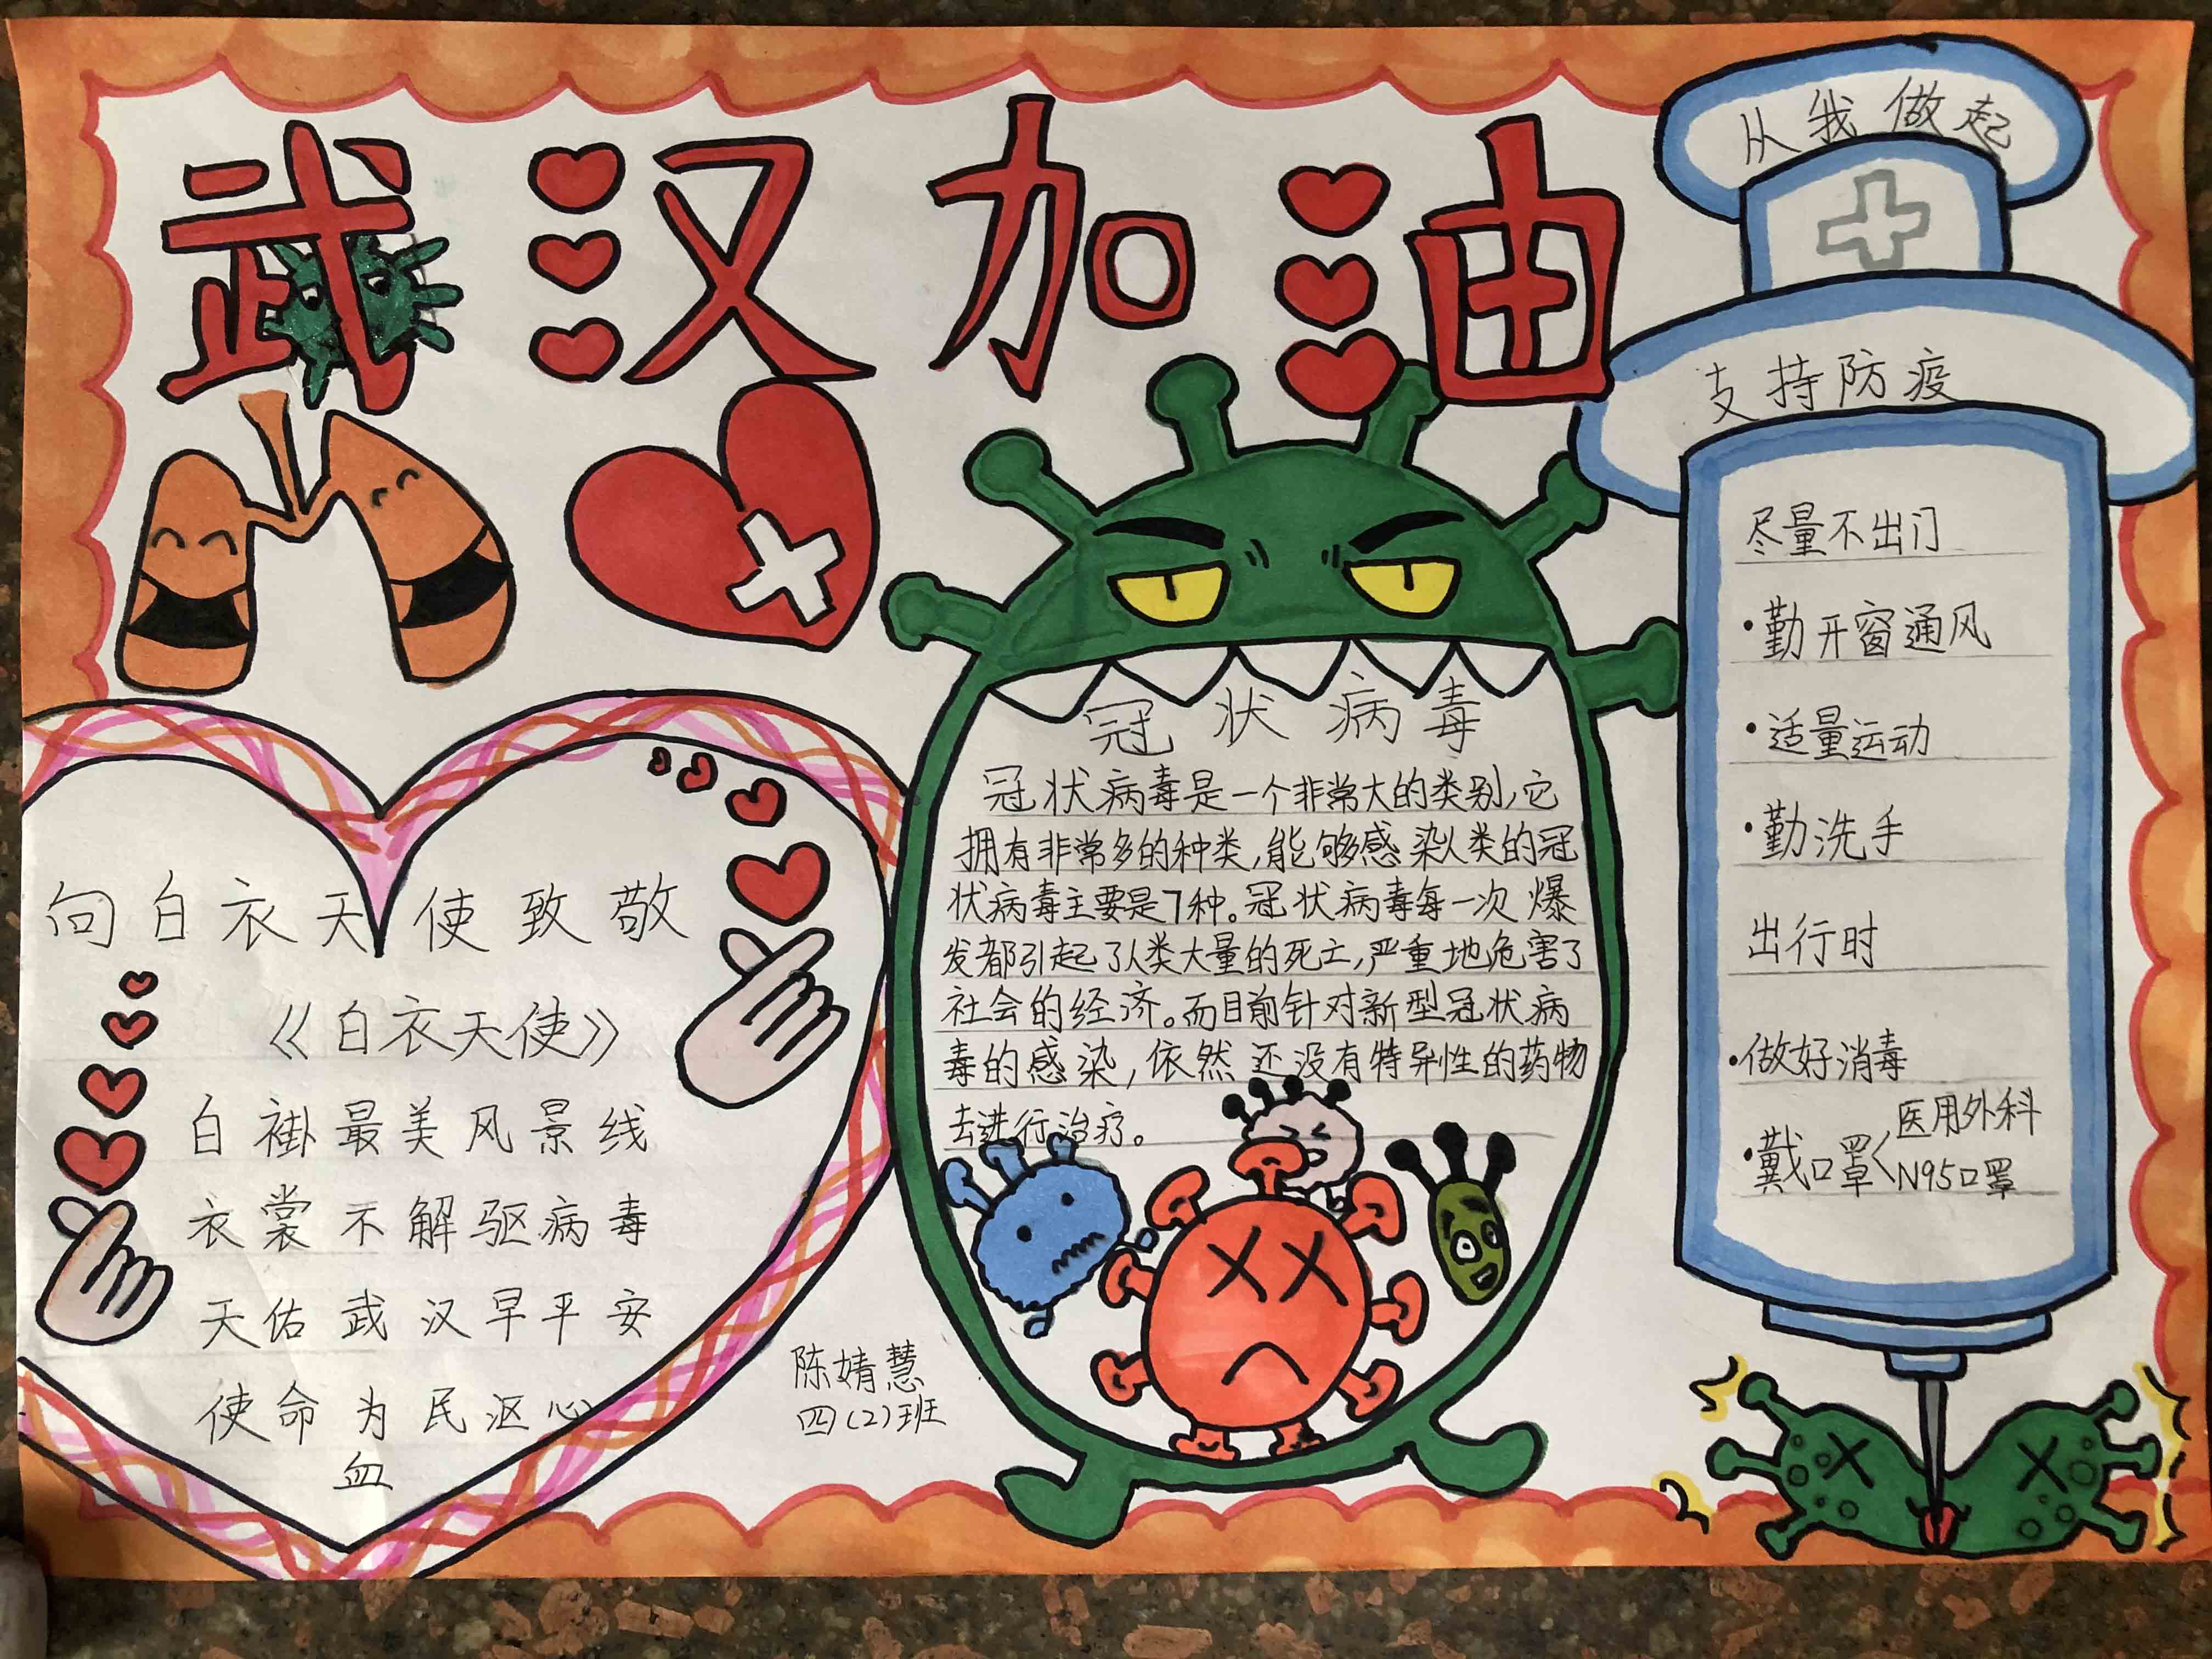 武汉加油
向白衣天使致敬
《白衣天使》
白褂最美风景线
衣裳不解驱病毒
天佑武汉早平安
使命为民沤心
血
陈婧慧
四(2)班
冠状病毒
冠状病毒是一个非常大的类别,它
拥有非常多的种类,能够感染人类的冠
状病毒主要是7种。冠状病毒每一次爆
发都引起了人类大量的死亡,严重地危害了
社会的经济。而目前针对新型冠状病
毒的感染,依然还没有特异性的药物
去进行治疗。
从我做起
支持防疫
尽量不出门
·勤开窗通风
·适量运动
·勤洗手
出行时
·做好消毒
·戴口罩<医用外科
N95口罩